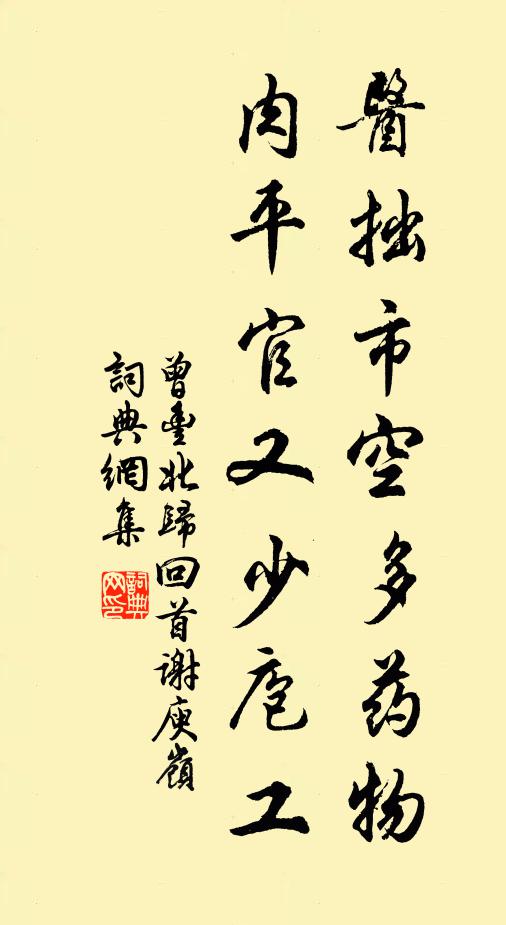 醫拙市空多药物
肉平官又少庖工
曾豊北歸回首謝庾嶺
詞典網集
詞典
网印